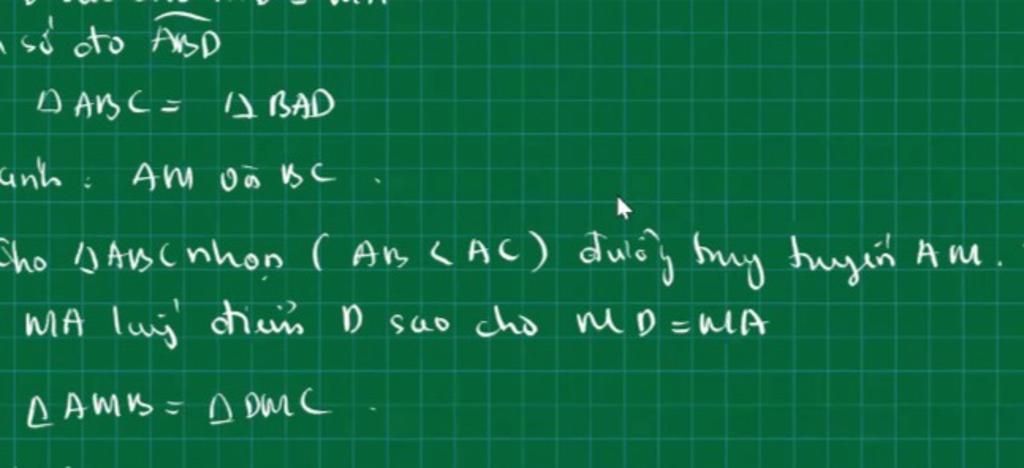 số đo ABD
Δ ABC = Δ BAD
anh : AM và BC .
Cho Δ ABC nhọn ( AB < AC ) đường trung tuyến AM .
MA lấy điểm D sao cho MD = MA
Δ AMB = Δ DMC .